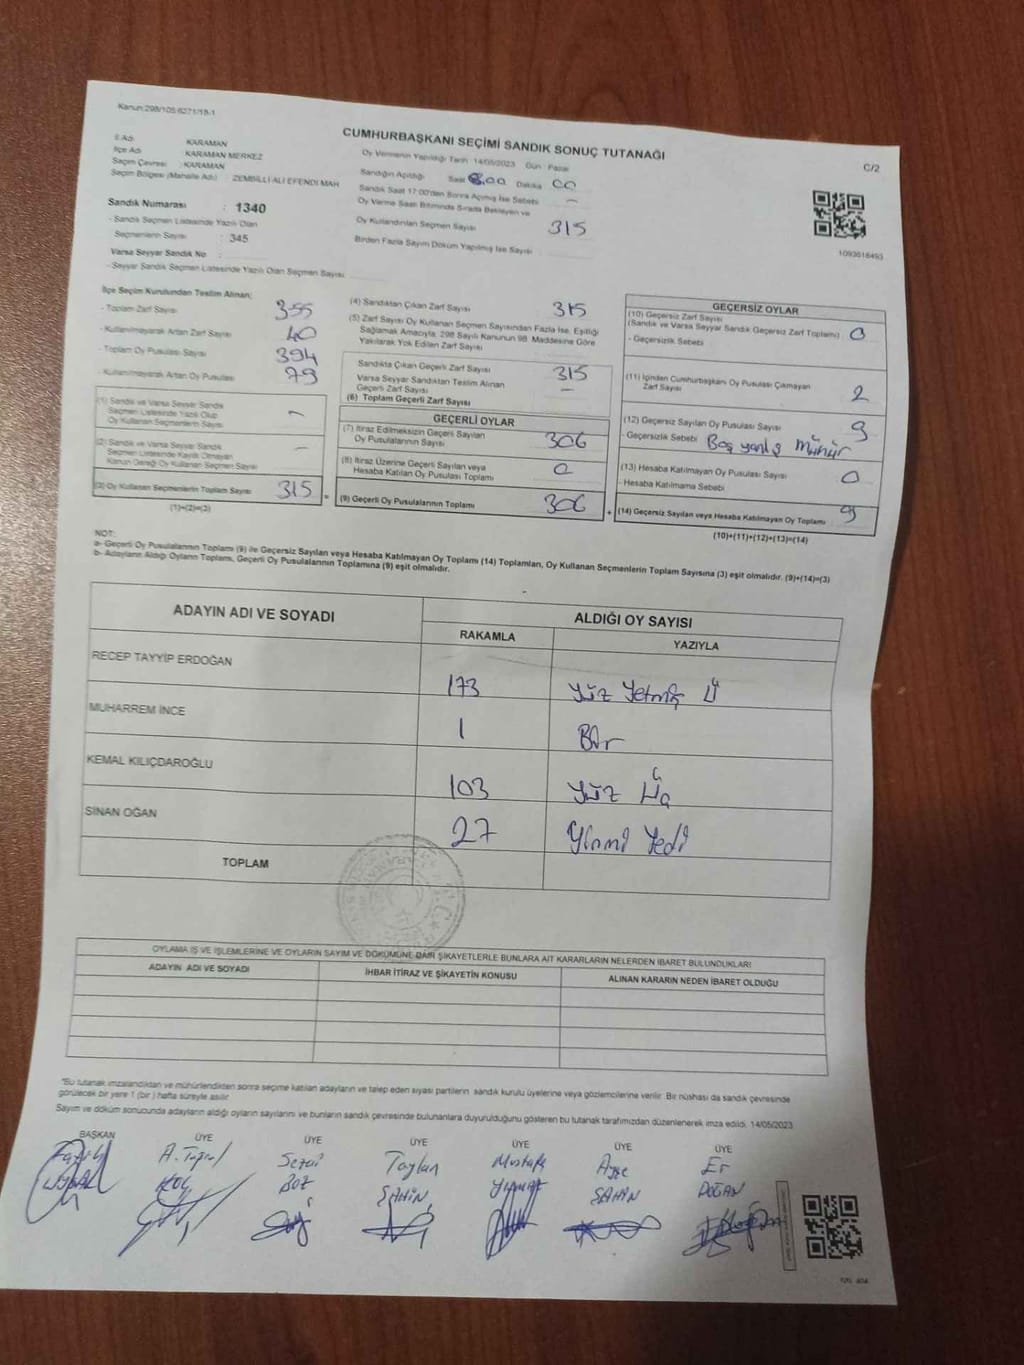 Kanun:298/105-6271/18-1
CUMHURBAŞKANI SEÇİMİ SANDIK SONUÇ TUTANAĞI
C/2
İl Adı : KARAMAN
İlçe Adı : KARAMAN MERKEZ
Seçim Çevresi : KARAMAN
Seçim Bölgesi (Mahalle Adı) : ZEMBİLLİ ALİ EFENDİ MAH
Sandık Numarası : 1340
- Sandık Seçmen Listesinde Yazılı Olan
Seçmenlerin Sayısı : 345
Varsa Seyyar Sandık No :
- Seyyar Sandık Seçmen Listesinde Yazılı Olan Seçmen Sayısı
Oy Vermenin Yapıldığı Tarih 14/05/2023 Gün : Pazar
Sandığın Açıldığı Saat 8.00 Dakika 00
Sandık Saat 17:00'den Sonra Açılmış İse Sebebi : -
Oy Verme Saati Bitiminde Sırada Bekleyen ve
Oy Kullandırılan Seçmen Sayısı 315
Birden Fazla Sayım Döküm Yapılmış İse Sayısı :
1093618493
İlçe Seçim Kurulundan Teslim Alınan:
- Toplam Zarf Sayısı 355
- Kullanılmayarak Artan Zarf Sayısı 40
- Toplam Oy Pusulası Sayısı 394
- Kullanılmayarak Artan Oy Pusulası 79
(1) Sandık ve Varsa Seyyar Sandık
Seçmen Listesinde Yazılı Olup
Oy Kullanan Seçmenlerin Sayısı -
(2) Sandık ve Varsa Seyyar Sandık
Seçmen Listesinde Kayıtlı Olmayan
Kanun Gereği Oy Kullanan Seçmen Sayısı -
(3) Oy Kullanan Seçmenlerin Toplam Sayısı 315
(1)+(2)=(3)
(4) Sandıktan Çıkan Zarf Sayısı 315
(5) Zarf Sayısı Oy Kullanan Seçmen Sayısından Fazla İse, Eşitliği
Sağlamak Amacıyla, 298 Sayılı Kanunun 98. Maddesine Göre
Yakılarak Yok Edilen Zarf Sayısı
Sandıkta Çıkan Geçerli Zarf Sayısı 315
Varsa Seyyar Sandıktan Teslim Alınan
Geçerli Zarf Sayısı -
(6) Toplam Geçerli Zarf Sayısı
GEÇERLİ OYLAR
(7) İtiraz Edilmeksizin Geçerli Sayılan
Oy Pusulalarının Sayısı 306
(8) İtiraz Üzerine Geçerli Sayılan veya
Hesaba Katılan Oy Pusulası Toplamı 0
(9) Geçerli Oy Pusulalarının Toplamı 306
GEÇERSİZ OYLAR
(10) Geçersiz Zarf Sayısı
(Sandık ve Varsa Seyyar Sandık Geçersiz Zarf Toplamı) 0
- Geçersizlik Sebebi
(11) İçinden Cumhurbaşkanı Oy Pusulası Çıkmayan
Zarf Sayısı 2
(12) Geçersiz Sayılan Oy Pusulası Sayısı 9
- Geçersizlik Sebebi Boş yanlış Mühür
(13) Hesaba Katılmayan Oy Pusulası Sayısı 0
- Hesaba Katılmama Sebebi
(14) Geçersiz Sayılan veya Hesaba Katılmayan Oy Toplamı 9
(10)+(11)+(12)+(13)=(14)
NOT:
a- Geçerli Oy Pusulalarının Toplamı (9) ile Geçersiz Sayılan veya Hesaba Katılmayan Oy Toplamı (14) Toplamları, Oy Kullanan Seçmenlerin Toplam Sayısına (3) eşit olmalıdır. (9)+(14)=(3)
b- Adayların Aldığı Oyların Toplamı, Geçerli Oy Pusulalarının Toplamına (9) eşit olmalıdır.
ADAYIN ADI VE SOYADI ALDIĞI OY SAYISI
RAKAMLA YAZIYLA
RECEP TAYYİP ERDOĞAN 173 Yüz Yetmiş Ü
MUHARREM İNCE 1 Bir
KEMAL KILIÇDAROĞLU 103 Yüz Üç
SİNAN OĞAN 27 Yirmi Yedi
TOPLAM
OYLAMA İŞ VE İŞLEMLERİNE VE OYLARIN SAYIM VE DÖKÜMÜNE DAİR ŞİKAYETLERLE BUNLARA AİT KARARLARIN NELERDEN İBARET BULUNDUKLARI
ADAYIN ADI VE SOYADI İHBAR İTİRAZ VE ŞİKAYETİN KONUSU ALINAN KARARIN NEDEN İBARET OLDUĞU
"Bu tutanak imzalandıktan ve mühürlendikten sonra seçime katılan adayların ve talep eden siyasi partilerin sandık kurulu üyelerine veya gözlemcilerine verilir. Bir nüshası da sandık çevresinde
görülecek bir yere 1 (bir) hafta süreyle asılır.
Sayım ve döküm sonucunda adayların aldığı oyların sayılarını ve bunların sandık çevresinde bulunanlara duyurulduğunu gösteren bu tutanak tarafımızdan düzenlenerek imza edildi. 14/05/2023
BAŞKAN ÜYE ÜYE ÜYE ÜYE ÜYE ÜYE
Sezai Taylan Mustafa Ayşe Er
KOÇ BOZ ŞAHİN ŞAHİN DOĞAN